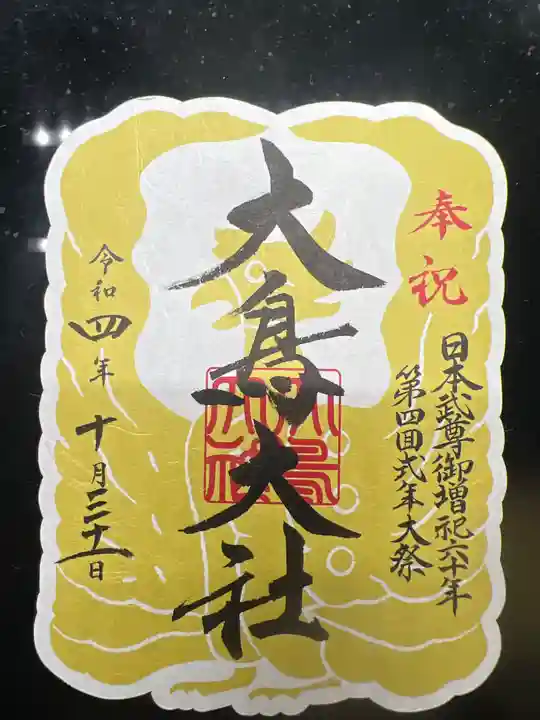 奉祝
日本武尊御増祀六十年
第四回式年大祭
大鳥大社
令和四年十月三十一日